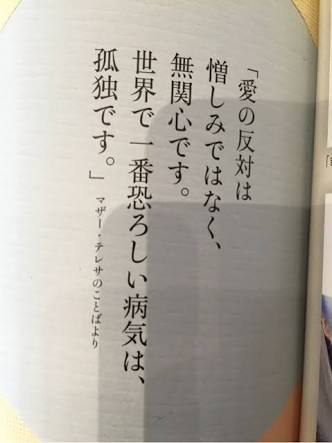 「愛の反対は
憎しみではなく、
無関心です。
世界で一番恐ろしい病気は、
孤独です。」
マザー・テレサのことばより